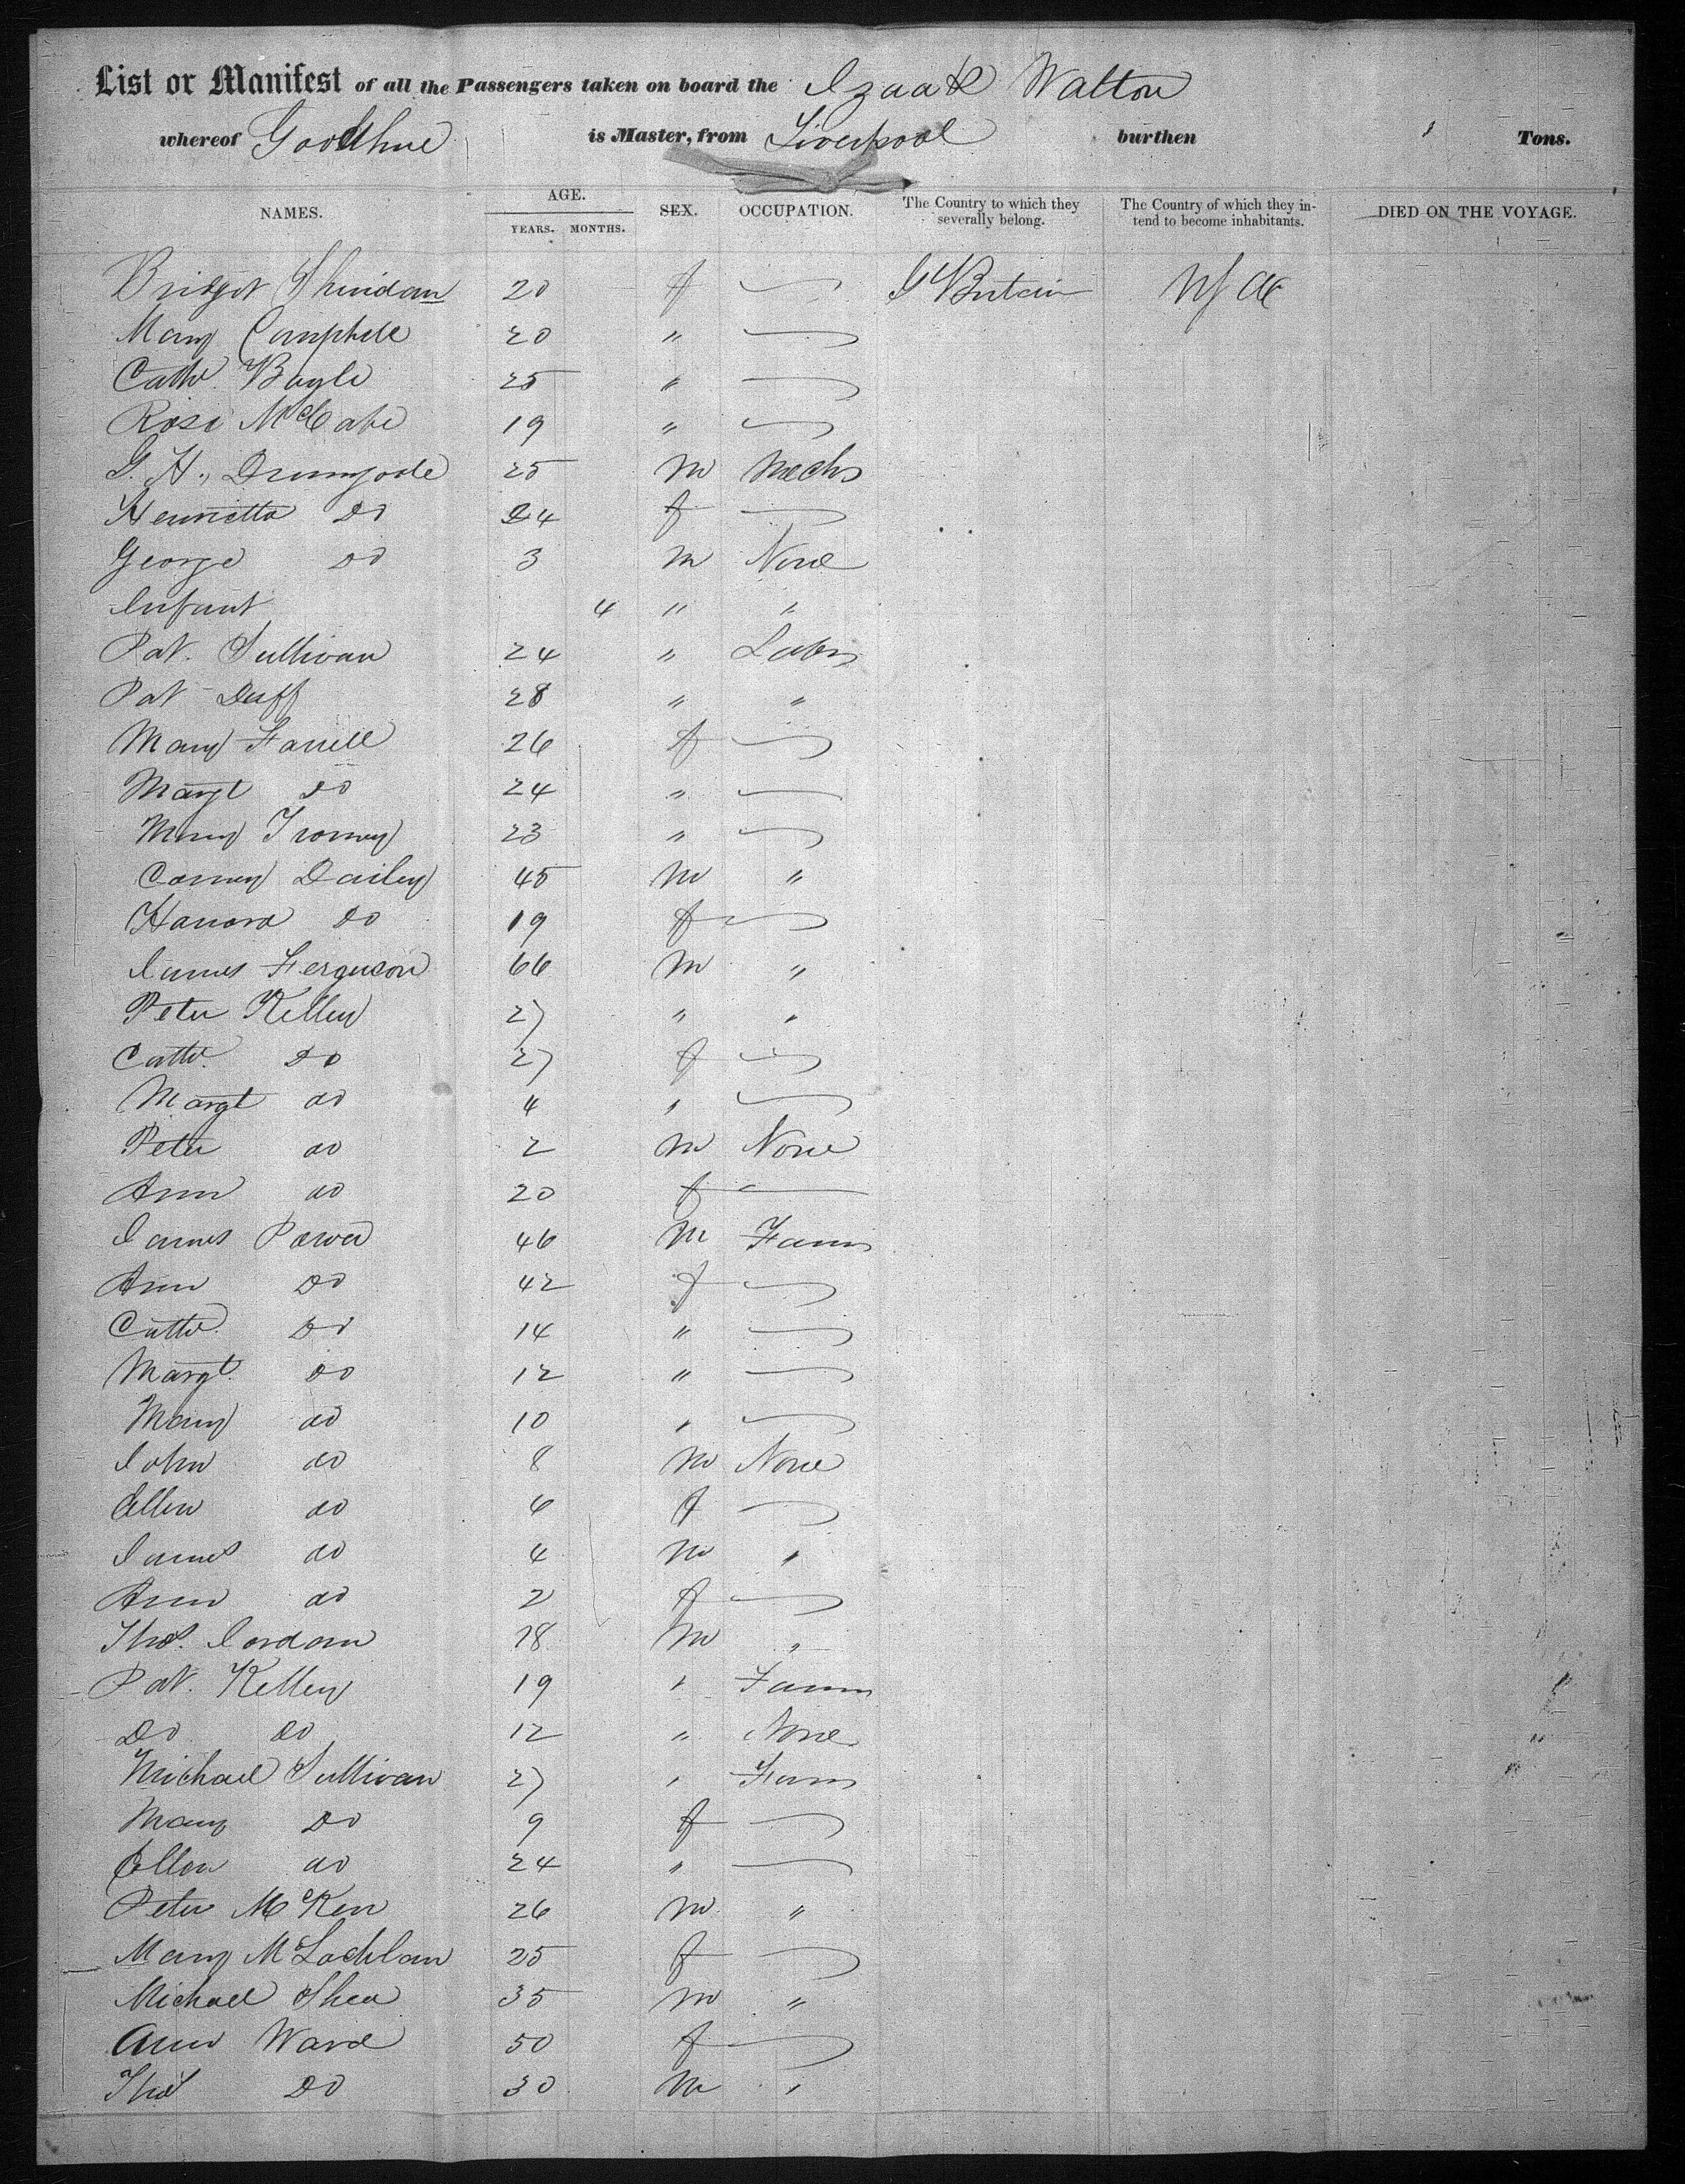 List or Manifest of all the Passengers taken on board the Izaak Walton
whereof Goodhue is Master, from Liverpool burthen Tons.
NAMES. AGE. YEARS. MONTHS. SEX. OCCUPATION. The Country to which they severally belong. The Country of which they intend to become inhabitants. DIED ON THE VOYAGE.
Bridget Sheridan 20 f — G Britain
Mary Camphell 20 " —
Cathe. Boyle 25 " —
Rose McCabe 19 " —
G. H. Drumgoole 25 m Mechs
Henrietta Do 24 f —
George Do 3 m None
Infant 4 " "
Pat. Sullivan 24 " Labr
Pat Duff 28 " "
Mary Farrell 26 f —
Margt Do 24 " —
Mary Twomey 23 " —
Dailey 45 m "
Hanora Do 19 f —
James Ferguson 66 m "
Peter Kelley 27 " "
Cathe. Do 27 f —
Margt do 4 " —
Peter do 2 m None
Ann do 20 f —
James Power 46 m Farmr
Ann Do 42 f —
Cathe. Do 14 " —
Margt. Do 12 " —
Mary do 10 " —
John do 8 m None
Ellen do 6 f —
James do 4 m "
Ann do 2 f —
Thos. Jordan 18 m "
Pat. Kelley 19 " Farmr
Do Do 12 " None
Michael Sullivan 27 " Farmr
Mary Do 9 f —
Ellen do 24 " —
Peter McKen 26 m "
Mary McLochlan 25 f —
Michael Shea 35 m "
Ann Ward 50 f —
Thos Do 30 m "